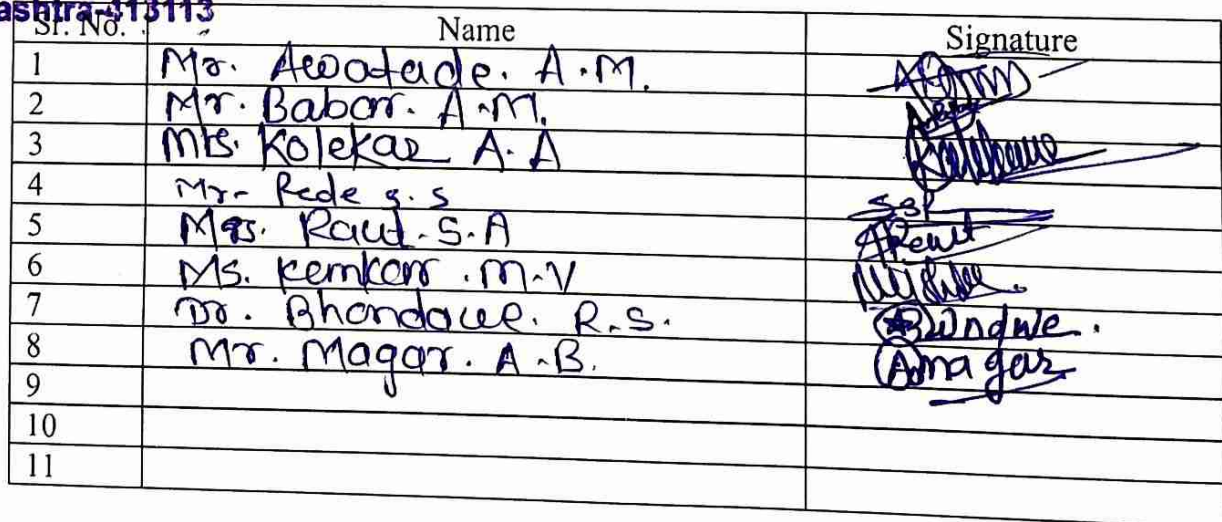 ashtra-413113
Sr. No. Name Signature
1 Mr. Awatade. A.M.
2 Mr. Babar. A.M.
3 Mrs. Kolekar A.A
4 Mr- Rede S.S
5 Mrs. Raut. S.A
6 Ms. Kemkar. M.V
7 Dr. Bhandawe. R.S.
8 Mr. Magar. A.B. Amagar
9
10
11